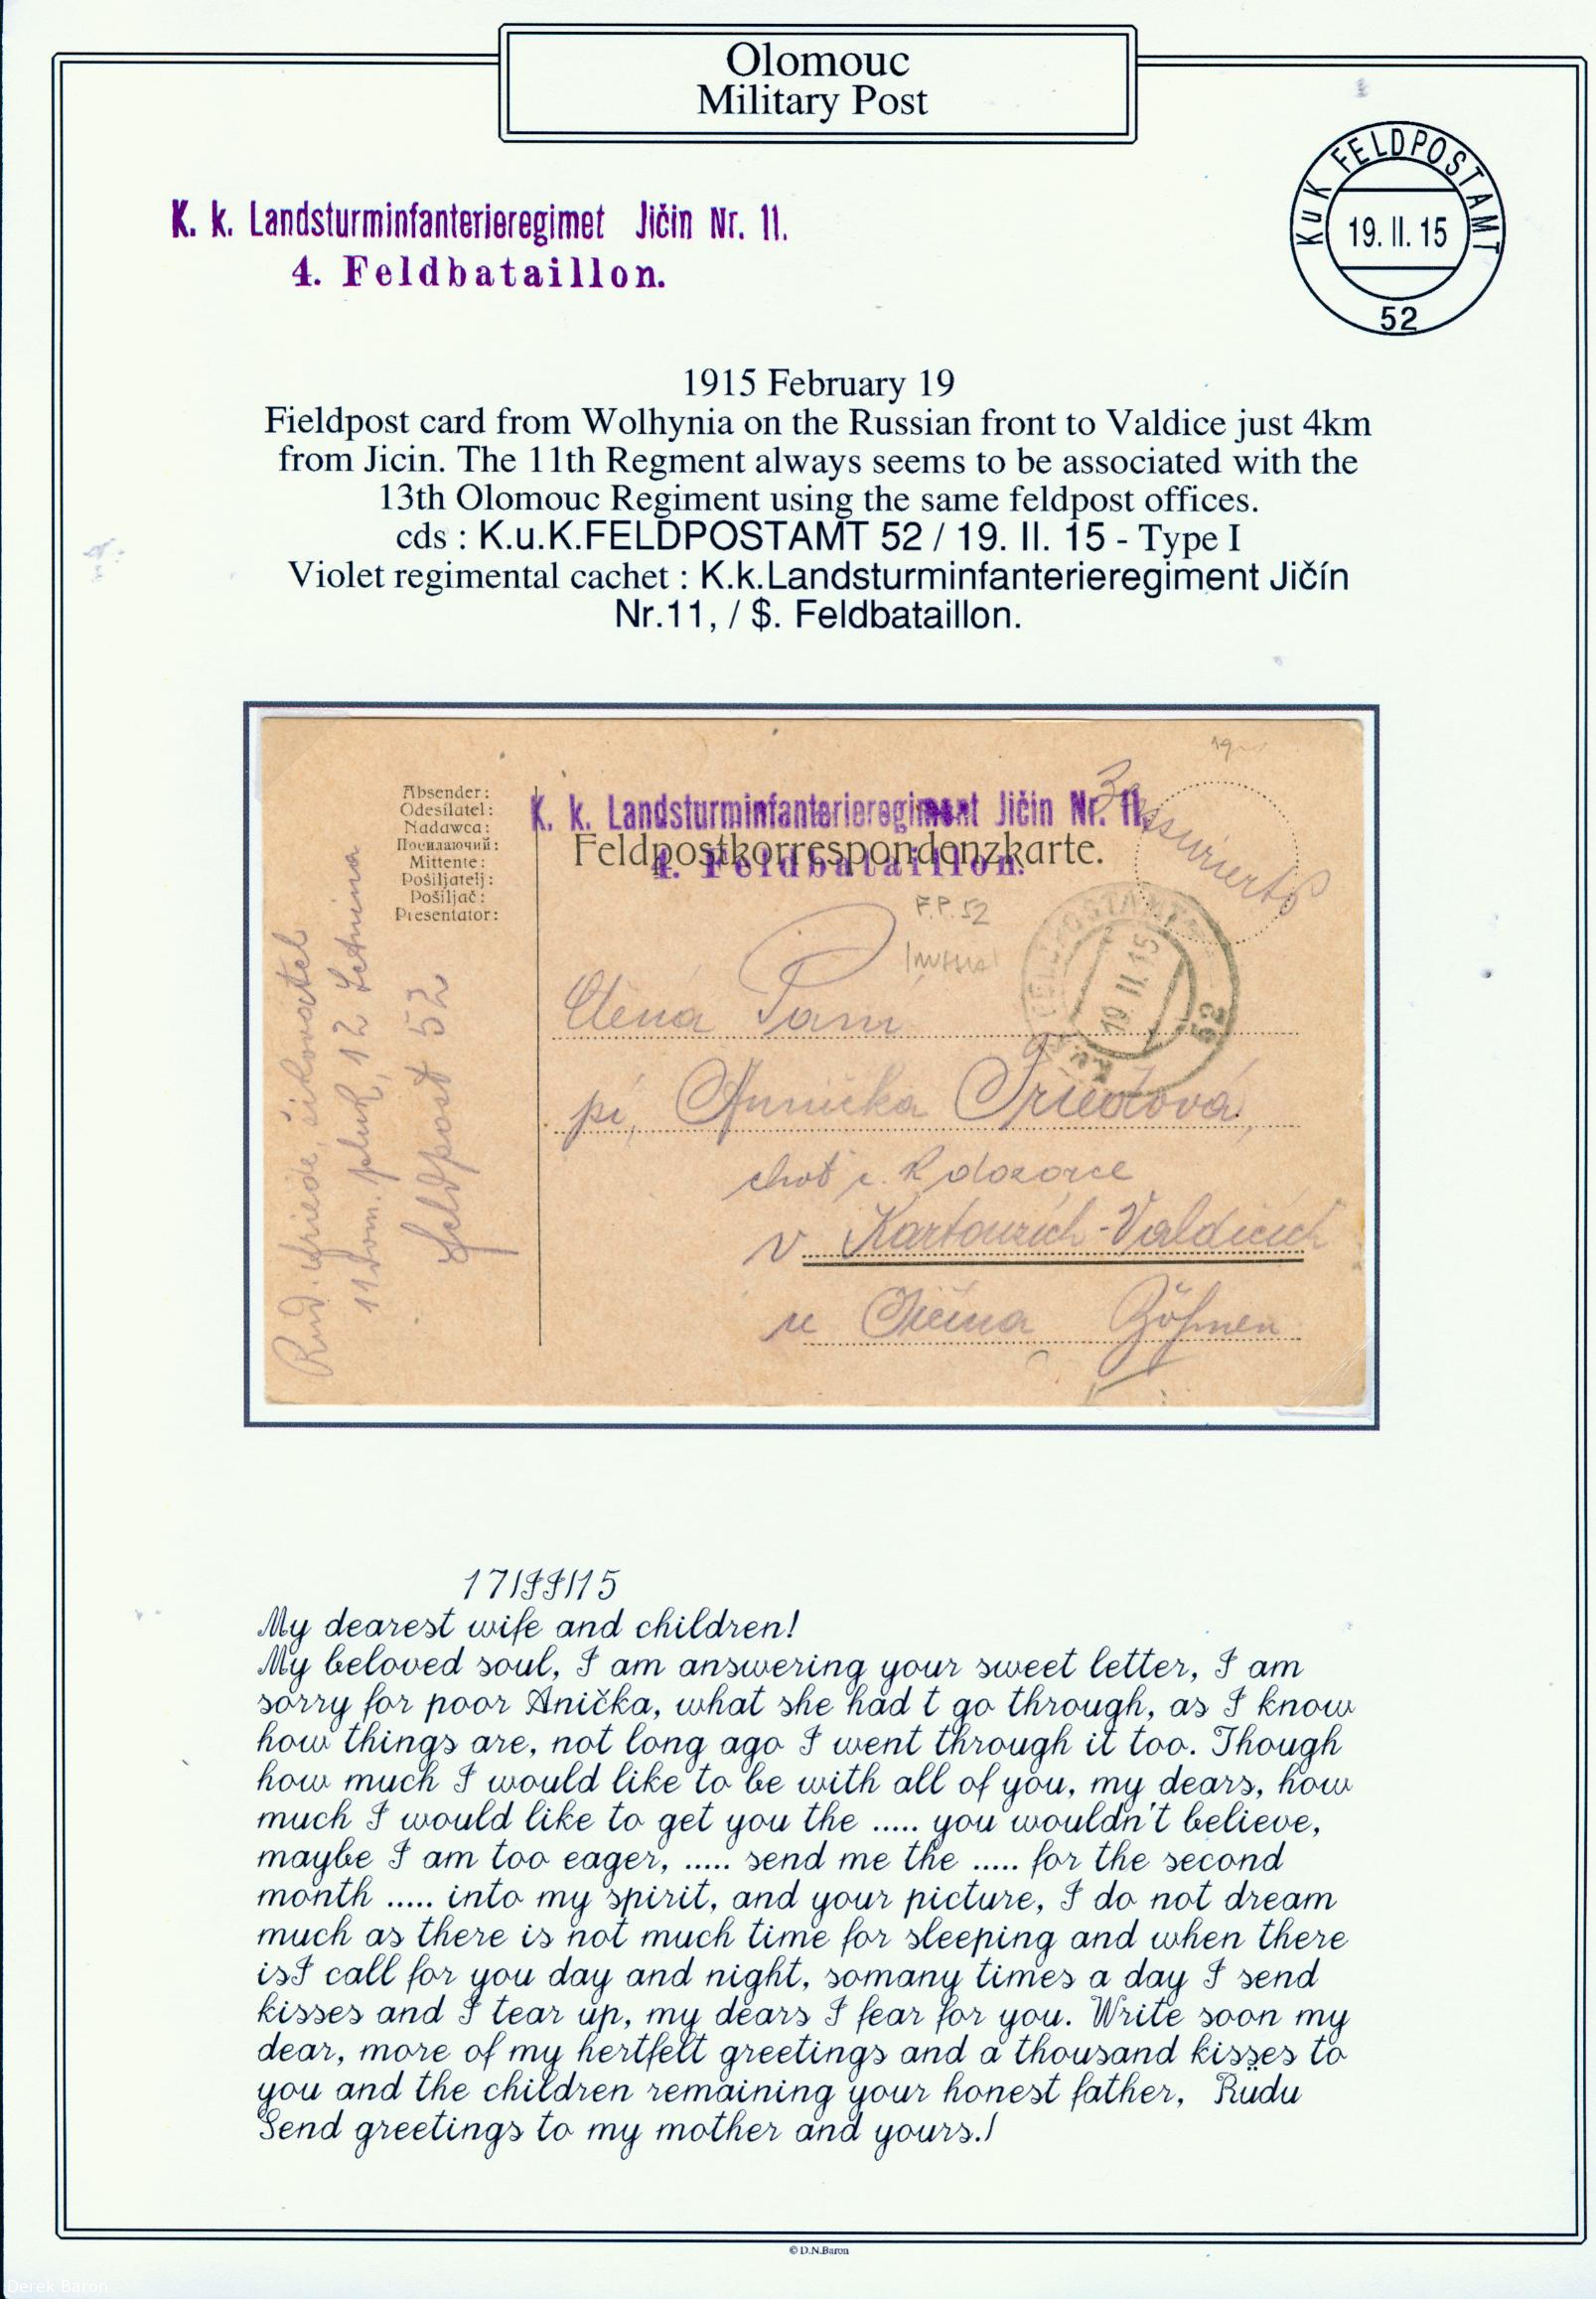 Olomouc
Military Post
KuK FELDPOSTAMT
19. II. 15
52
K. k. Landsturminfanterieregimet Jičin Nr. 11.
4. Feldbataillon.
1915 February 19
Fieldpost card from Wolhynia on the Russian front to Valdice just 4km
from Jicin. The 11th Regment always seems to be associated with the
13th Olomouc Regiment using the same feldpost offices.
cds : K.u.K.FELDPOSTAMT 52 / 19. II. 15 - Type I
Violet regimental cachet : K.k.Landsturminfanterieregiment Jičín
Nr.11, / $. Feldbataillon.
Absender:
Odesílatel:
Nadawca:
Посилаючий:
Mittente:
Pošiljatelj:
Pošiljač:
Presentator:
K. k. Landsturminfanterieregiment Jičin Nr. 11.
Feldpostkorrespondenzkarte.
4. Feldbataillon.
F.P. 52
19 II. 15
52
Rud. šikovatel
11 dom. pluk, 12 Setnina
Feldpost 52
Ctěná Paní
pí, Annička
choť c. k dozorce
v Kartouzích-Valdicích
u Jičína Böhmen
17/II/15
My dearest wife and children!
My beloved soul, I am answering your sweet letter, I am
sorry for poor Anička, what she had t go through, as I know
how things are, not long ago I went through it too. Though
how much I would like to be with all of you, my dears, how
much I would like to get you the ..... you wouldn't believe,
maybe I am too eager, ..... send me the ..... for the second
month ..... into my spirit, and your picture, I do not dream
much as there is not much time for sleeping and when there
isI call for you day and night, somany times a day I send
kisses and I tear up, my dears I fear for you. Write soon my
dear, more of my hertfelt greetings and a thousand kisses to
you and the children remaining your honest father, Rüdu
Send greetings to my mother and yours.!
© D.N.Baron
Derek Baron